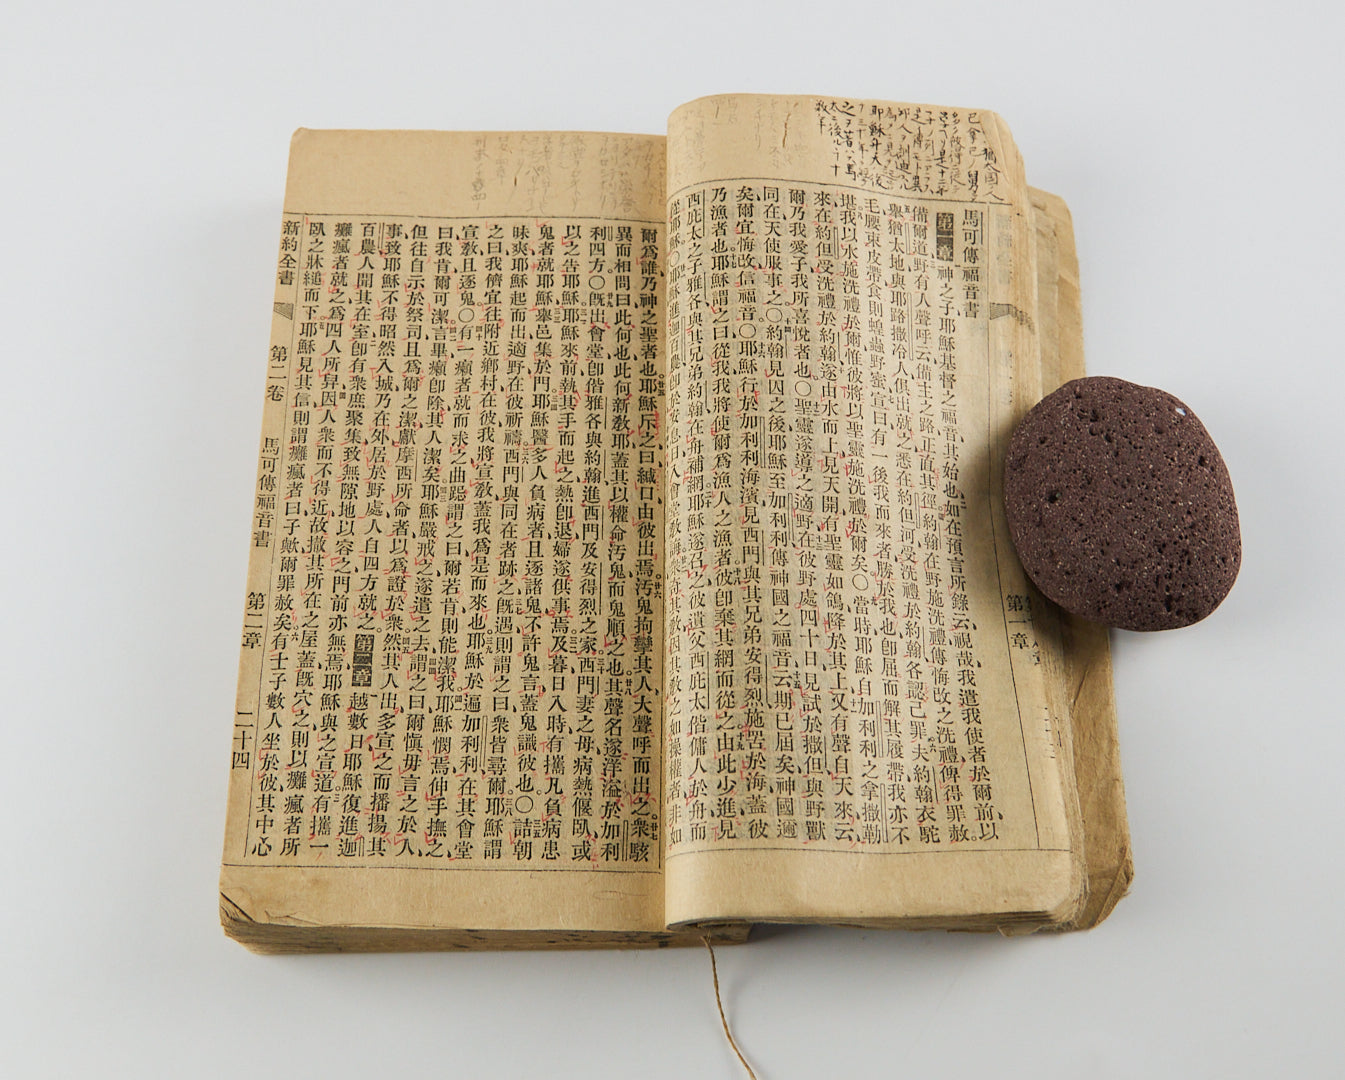 馬可傳福音書
第一章 神之子耶穌基督之福音其始也、如在預言所錄云、視哉、我遣我使者於爾前、以
備爾道、野有人聲呼云、備主之路、正直其徑、約翰在野施洗禮、傳悔改之洗禮、俾得罪赦。
舉猶太地與耶路撒冷人、俱出就之、悉在約但河受洗禮於約翰、各認己罪、夫約翰衣駝
毛、腰束皮帶、食則蝗蟲野蜜、宣曰、有一後我而來者、勝於我也、卽屈而解其履帶、我亦不
堪、我以水施洗禮於爾、惟彼將以聖靈施洗禮於爾矣。○當時耶穌自加利利之拿撒勒
來、在約但受洗禮於約翰、遂由水而上、見天開、有聖靈如鴿、降於其上、又有聲自天來云、
爾乃我愛子、我所喜悅者也。○聖靈遂導之適野、在彼野處四十日、見試於撒但、與野獸
同在、天使服事之。○約翰見囚之後、耶穌至加利利、傳神國之福音、云、期已屆矣、神國邇
矣、爾宜悔改信福音。○耶穌行於加利利海濱、見西門與其兄弟安得烈施罟於海、蓋彼
乃漁者也、耶穌謂之曰、從我、我將使爾爲漁人之漁者、彼卽棄其網而從之、由此少進、見
西庇太之子雅各與其兄弟約翰、在舟補網、耶穌遂召之、彼遺父西庇太偕傭人於舟、而
從耶穌。○耶穌進迦百農、卽於安息日入會堂敎誨、衆奇其敎、因其敎之如操權者、非如
爾爲誰、乃神之聖者也、耶穌斥之曰、緘口、由彼出焉、汚鬼拘攣其人、大聲呼而出之、衆駭
異而相問曰、此何也、此何新敎耶、蓋其以權命汚鬼、而鬼順之也、其聲名遂洋溢於加利
利四方。○旣出會堂、卽偕雅各與約翰、進西門及安得烈之家、西門妻之母、病熱偃臥、或
以之吿耶穌、耶穌來前、執其手而起之、熱卽退、婦遂供事焉、及暮日入時、有攜凡負病患
鬼者就耶穌、舉邑集於門、耶穌醫多人負病者、且逐諸鬼、不許鬼言、蓋鬼識彼也。○詰朝
昧爽、耶穌起而出、適野、在彼祈禱、西門與同在者跡之、旣遇、則謂之曰、衆皆尋爾、耶穌謂
之曰、我儕宜往附近鄉村、在彼我將宣敎、蓋我爲是而來也、耶穌於遍加利利、在其會堂
宣敎、且逐鬼。○有一癩者就而求之、曲跽謂之曰、爾若肯、則能潔我、耶穌憫焉、伸手撫之、
曰、我肯、爾可潔、言畢、癩卽除、其人潔矣、耶穌嚴戒之、遂遣之去、謂之曰、爾愼毋言之於人、
但往自示於祭司、且爲爾之潔、獻摩西所命者、以爲證於衆、然其人出、多宣之而播揚其
事、致耶穌不得昭然入城、乃在外居於野處、人自四方就之。第二章 越數日、耶穌復進迦
百農、人聞其在室、卽有衆庶聚集、致無隙地以容之、門前亦無焉、耶穌與之宣道、有攜一
癱瘋者就之、爲四人所舁、因人衆而不得近、故撤其所在之屋蓋、旣穴之、則以癱瘋者所
臥之牀、縋而下、耶穌見其信、則謂癱瘋者曰、子歟、爾罪赦矣、有士子數人坐於彼、其中心
新約全書
第二卷
馬可傳福音書
第二章
二十四